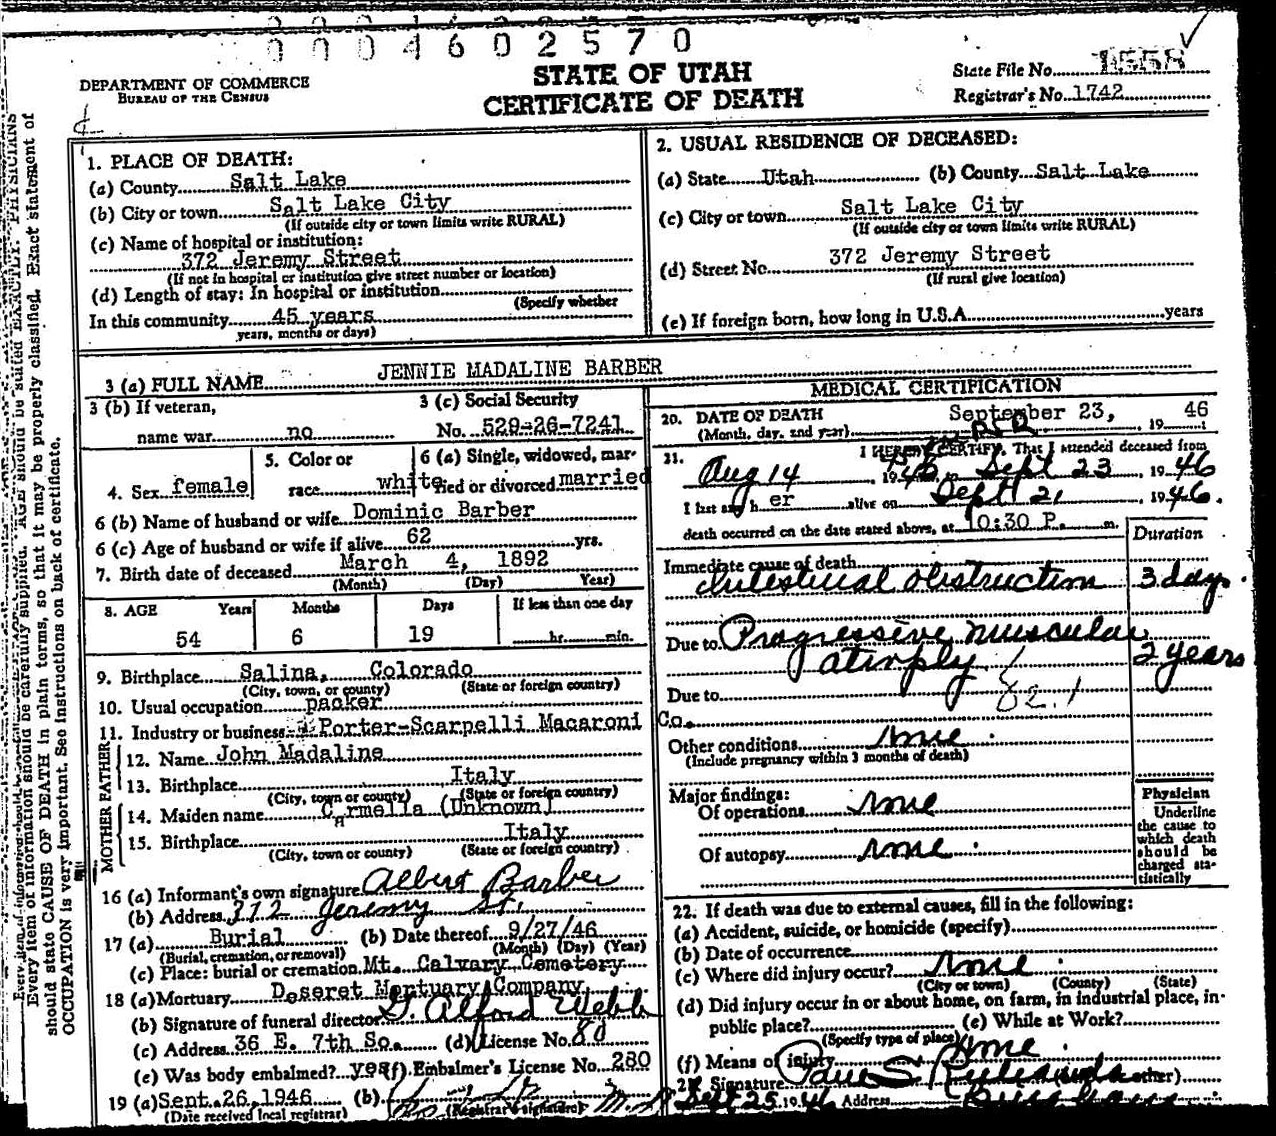 0004602570
STATE OF UTAH
CERTIFICATE OF DEATH
DEPARTMENT OF COMMERCE
BUREAU OF THE CENSUS
State File No. 1558
Registrar's No. 1742
1. PLACE OF DEATH:
(a) County Salt Lake
(b) City or town Salt Lake City
(If outside city or town limits write RURAL)
(c) Name of hospital or institution:
372 Jeremy Street
(If not in hospital or institution give street number or location)
(d) Length of stay: In hospital or institution
(Specify whether
In this community 45 years
years, months or days)
2. USUAL RESIDENCE OF DECEASED:
(a) State Utah (b) County Salt Lake
(c) City or town Salt Lake City
(If outside city or town limits write RURAL)
(d) Street No. 372 Jeremy Street
(If rural give location)
(e) If foreign born, how long in U.S.A. years
3 (a) FULL NAME JENNIE MADALINE BARBER
3 (b) If veteran,
name war no
3 (c) Social Security
No. 529-26-7241
4. Sex female
5. Color or
race white
6 (a) Single, widowed, mar-
ried or divorced married
6 (b) Name of husband or wife Dominic Barber
6 (c) Age of husband or wife if alive 62 yrs.
7. Birth date of deceased March 4, 1892
(Month) (Day) Year)
8. AGE Years Months Days If less than one day
54 6 19 hr. min.
9. Birthplace Salina, Colorado
(City, town, or county) (State or foreign country)
10. Usual occupation packer
11. Industry or business Porter-Scarpelli Macaroni Co.
FATHER
12. Name John Madaline
13. Birthplace Italy
(City, town or county) (State or foreign country)
MOTHER
14. Maiden name Carmella (Unknown)
15. Birthplace Italy
(City, town or county) (State or foreign country)
16 (a) Informant's own signature Albert Barber
(b) Address 372 Jeremy St.
17 (a) Burial (b) Date thereof 9/27/46
(Burial, cremation, or removal) (Month) (Day) (Year)
(c) Place: burial or cremation Mt. Calvary Cemetery
18 (a) Mortuary Deseret Mortuary Company
(b) Signature of funeral director G. Alford Webb
(c) Address 36 E. 7th So. (d) License No. 80
(e) Was body embalmed? yes (f) Embalmer's License No. 280
19 (a) Sept. 26, 1946 (b)
(Date received local registrar) (Registrar's signature)
MEDICAL CERTIFICATION
20. DATE OF DEATH September 23, 19 46
(Month, day, and year)
21. I HEREBY CERTIFY, That I attended deceased from
Aug 14 1946, Sept 23 1946
I last saw her alive on Sept 21, 1946.
death occurred on the date stated above, at 10:30 P. m.
Duration
Immediate cause of death
Intestinal obstruction 3 days.
Due to Progressive muscular
atrophy 2 years
82.1
Due to
Other conditions none.
(Include pregnancy within 3 months of death)
Major findings:
Of operations none
Of autopsy none.
Physician
Underline
the cause to
which death
should be
charged sta-
tistically
22. If death was due to external causes, fill in the following:
(a) Accident, suicide, or homicide (specify)
(b) Date of occurrence
(c) Where did injury occur? none.
(City or town) (County) (State)
(d) Did injury occur in or about home, on farm, in industrial place, in-
public place? (e) While at Work?
(Specify type of place)
(f) Means of injury none.
Signature Paul S. other)
Sept 25, 1946 Address
Every item of information should be carefully supplied. AGE should be stated EXACTLY. PHYSICIANS
should state CAUSE OF DEATH in plain terms, so that it may be properly classified. Exact statement of
OCCUPATION is very important. See instructions on back of certificate.